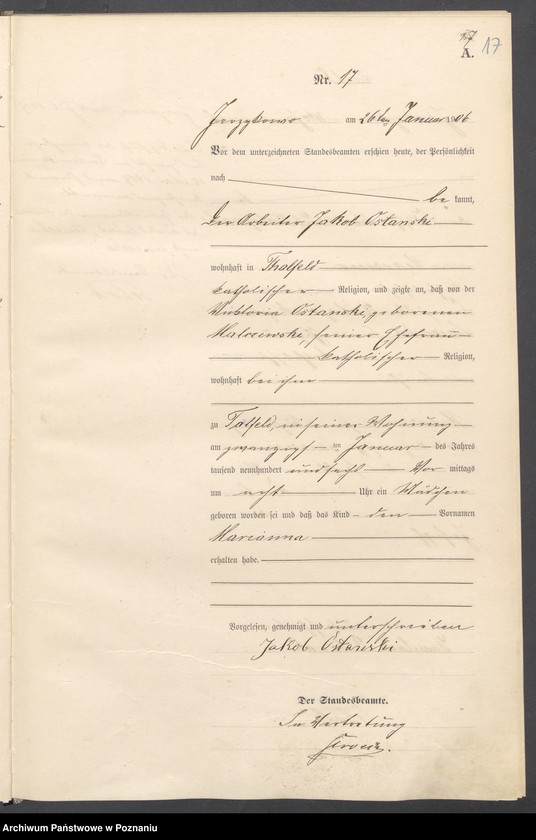 17
A. 17
Nr. 17
Jerzykowo am 26ten Januar 1906
Vor dem unterzeichneten Standesbeamten erschien heute, der Persönlichkeit
nach be kannt,
Der Arbeiter Jakob Ostanski
wohnhaft in Thalfeld
katholischer Religion, und zeigte an, daß von der
Viktoria Ostanski, geborenen
Malczewski, seiner Ehefrau
katholischer Religion,
wohnhaft bei ihm
zu Talfeld, in seiner Wohnung
am zwanzigst ten Januar des Jahres
tausend neunhundert und sechs Vor mittags
um acht Uhr ein Mädchen
geboren worden sei und daß das Kind den Vornamen
Marianna
erhalten habe.
Vorgelesen, genehmigt und unterschrieben
Jakob Ostanski
Der Standesbeamte.
In Vertretung
Archiwum Państwowe w Poznaniu